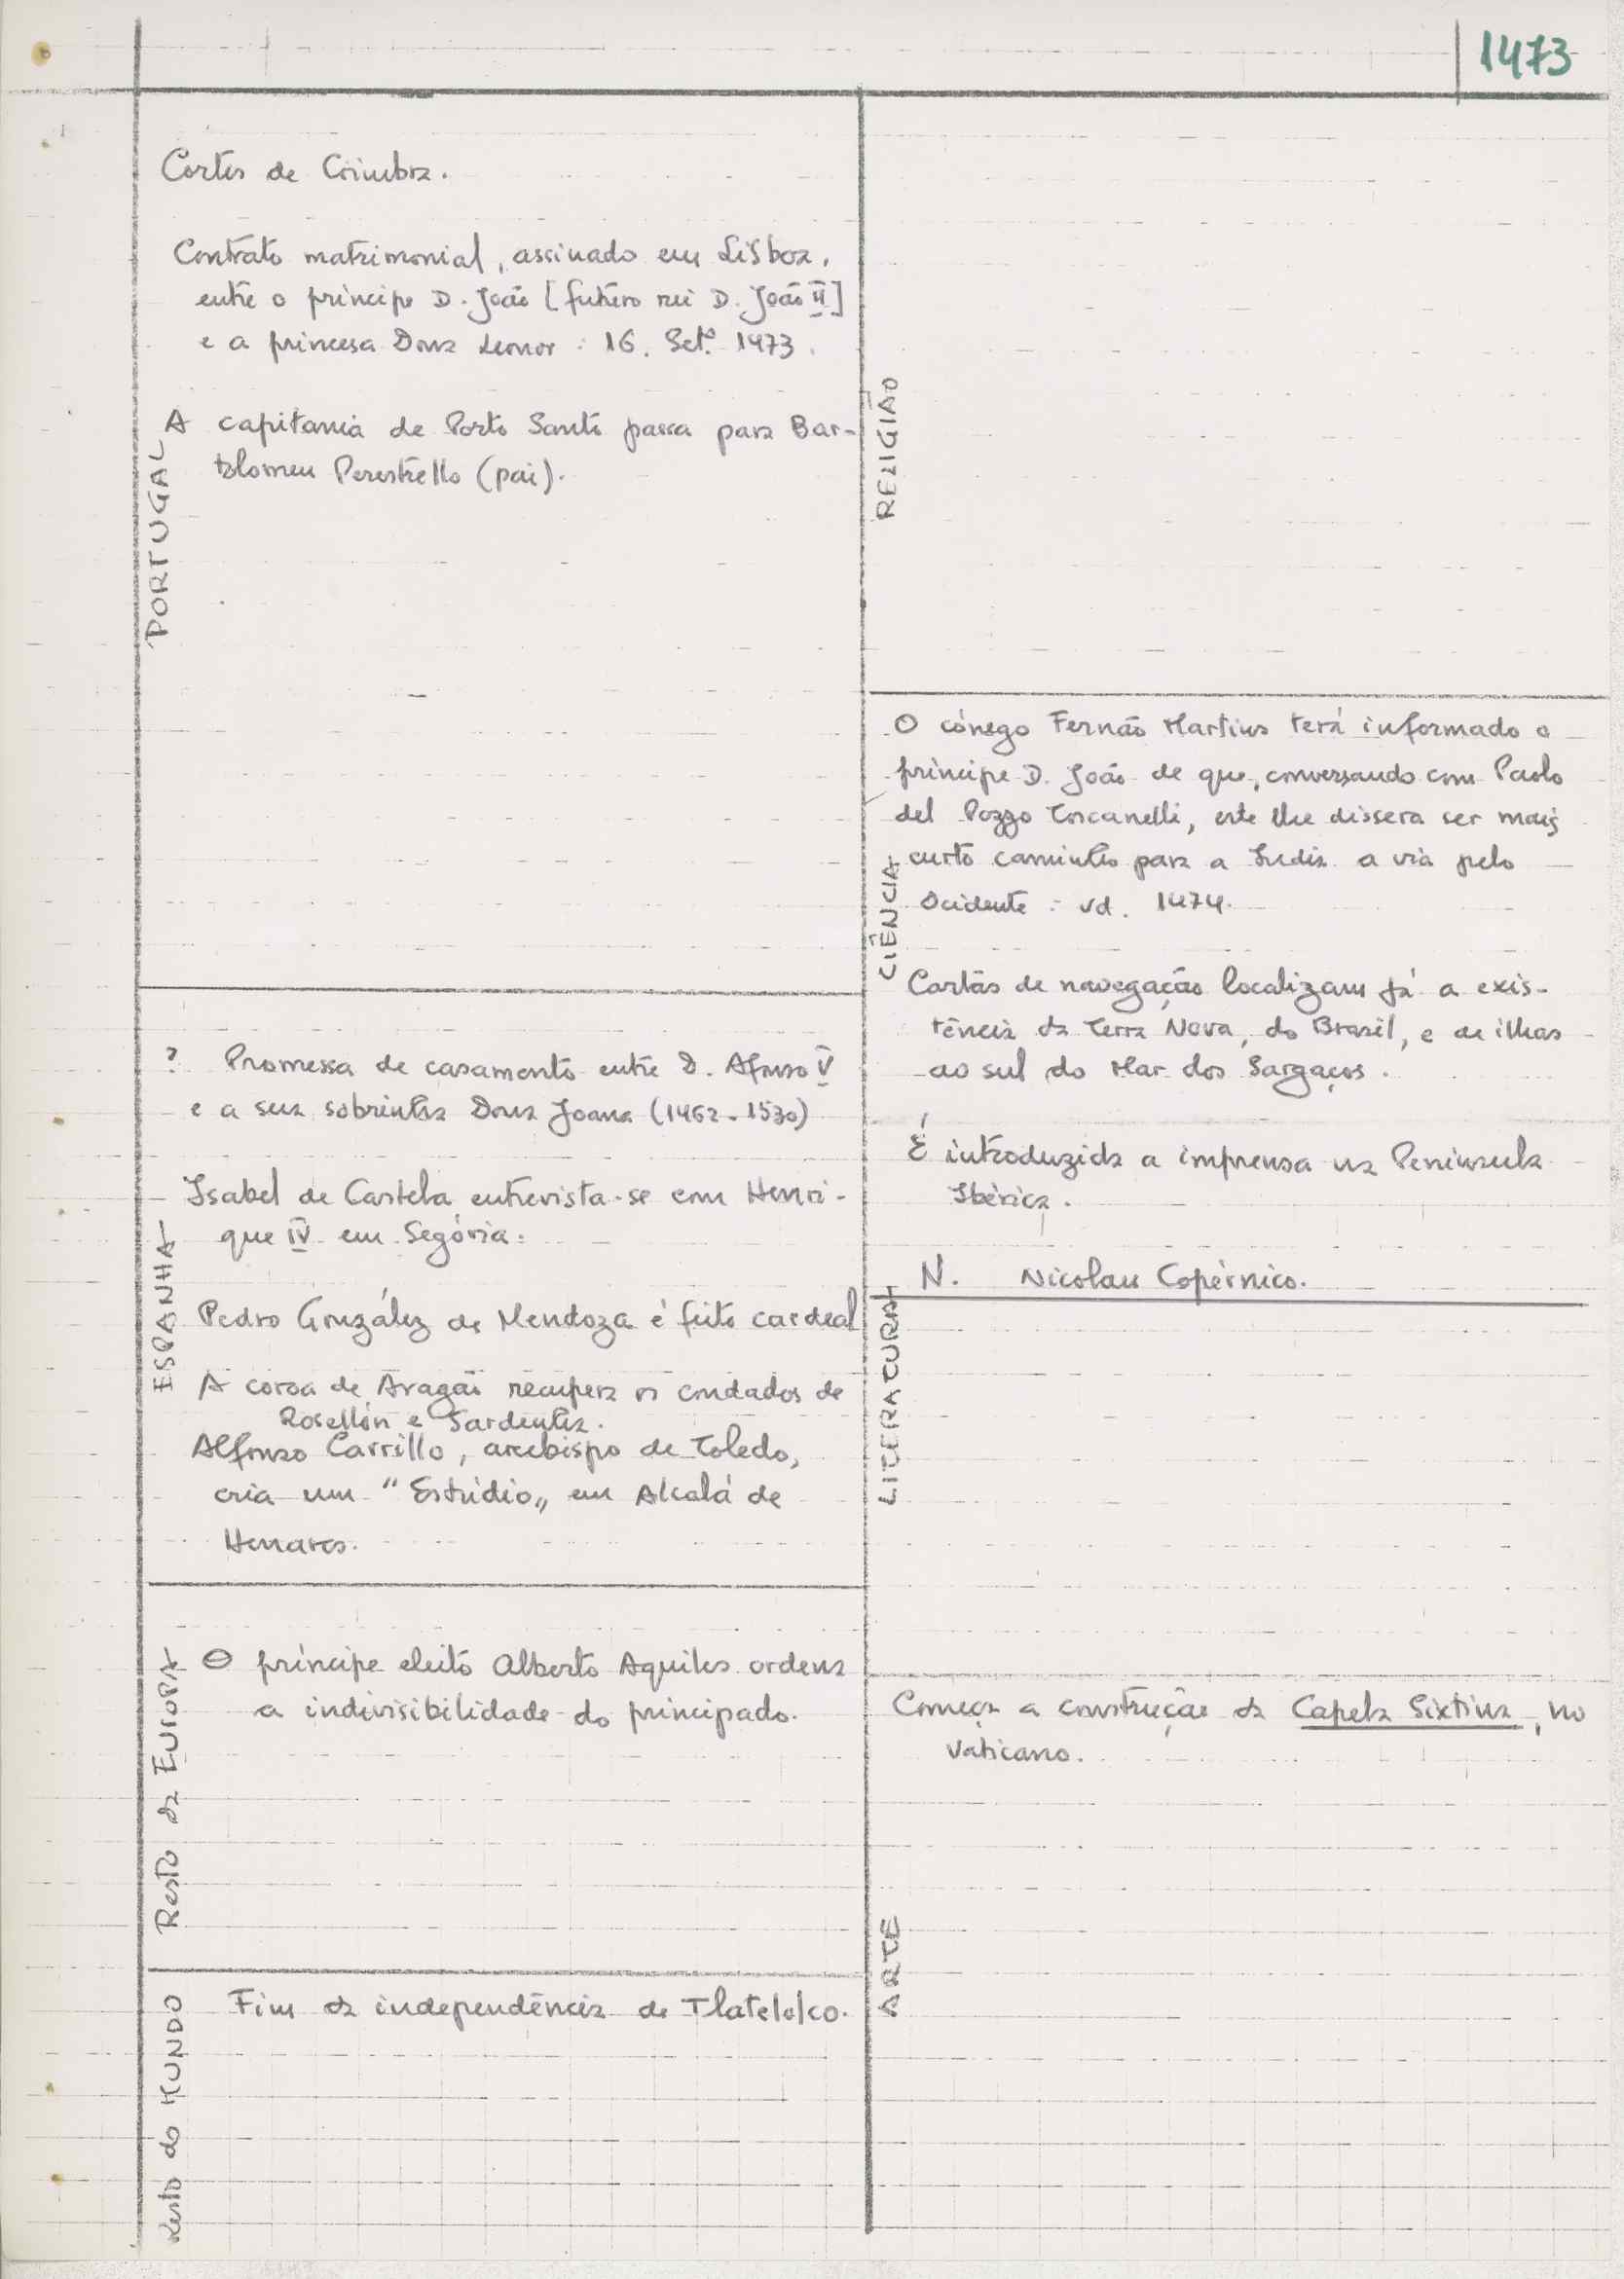 1473
PORTUGAL
Cortes de Coimbra.
Contrato matrimonial, assinado em Lisboa,
entre o príncipe D. João [futuro rei D. João II]
e a princesa Dona Leonor : 16. Setº. 1473.
A capitania de Porto Santo passa para Bar-
tolomeu Perestrello (pai).
ESPANHA
? Promessa de casamento entre D. Afonso V
e a sua sobrinha Dona Joana (1462-1530)
Isabel de Castela entrevista-se com Henri-
que IV em Segóvia.
Pedro González de Mendoza é feito cardeal
A coroa de Aragão recupera os condados de
Rosellón e Sardenha.
Alfonso Carrillo, arcebispo de Toledo,
cria um "Estúdio„ em Alcalá de
Henares.
Resto da EUROPA
O príncipe eleito Alberto Aquiles ordena
a indivisibilidade do principado.
Resto do MUNDO
Fim da independência de Tlatelolco.
RELIGIÃO
CIÊNCIA
O cónego Fernão Martins terá informado o
príncipe D. João de que, conversando com Paolo
del Pozzo Toscanelli, este lhe dissera ser mais
curto caminho para a Índia a via pelo
Ocidente : vd. 1474.
Cartas de navegação localizam já a exis-
tência da Terra Nova, do Brasil, e de ilhas
ao sul do Mar dos Sargaços.
É introduzida a imprensa na Península
Ibérica.
N. Nicolau Copérnico.
LITERATURA
ARTE
Começa a construção da Capela Sixtina, no
Vaticano.